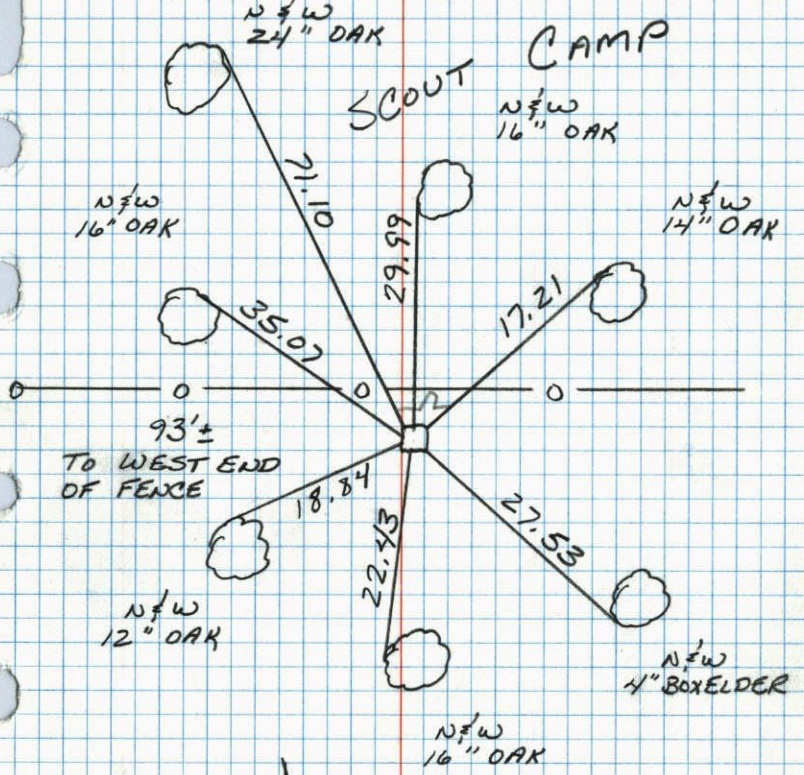 N & W
24" OAK
SCOUT CAMP
N & W
16" OAK
71.10
N & W
16" OAK
N & W
14" OAK
29.99
17.21
35.07
93'±
TO WEST END
OF FENCE
18.84
27.53
22.43
N & W
12" OAK
N & W
4" BOXELDER
N & W
16" OAK